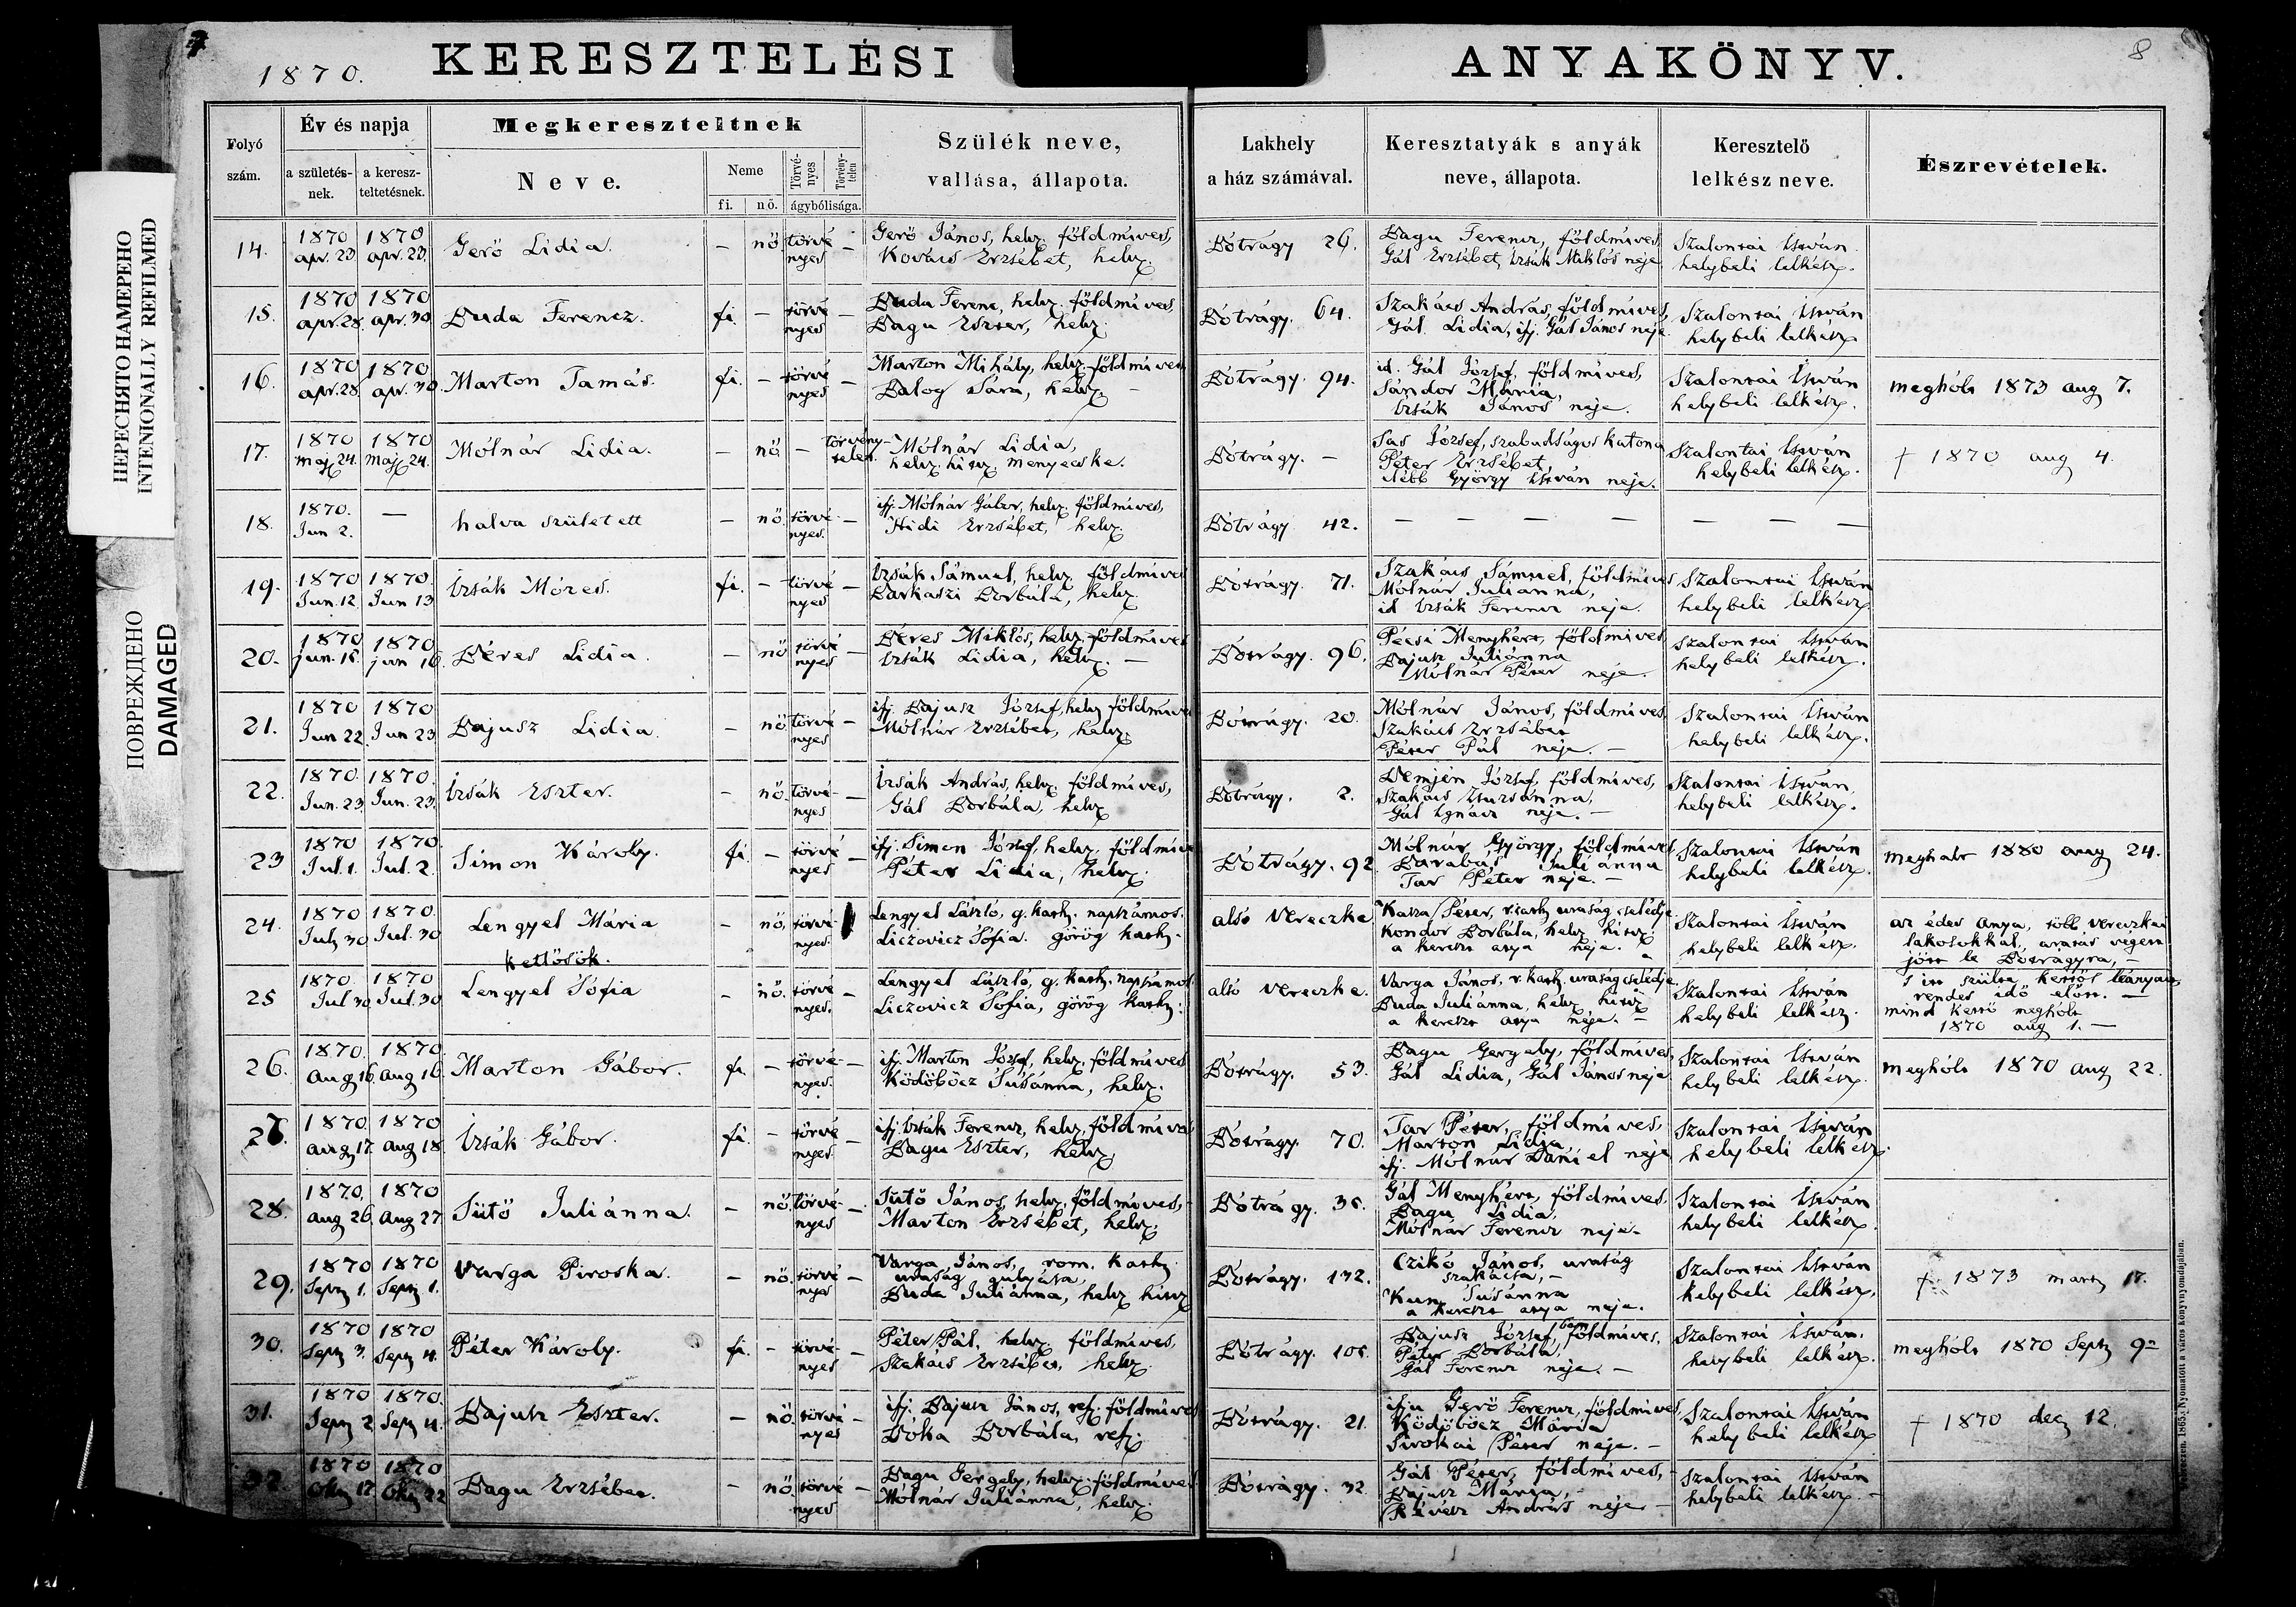 1870. KERESZTELÉSI ANYAKÖNYV. 8
ПЕРЕСНЯТО НАМЕРЕНО
INTENIONALLY REFILMED
ПОВРЕЖДЕНО
DAMAGED
Folyó szám.
Év és napja
a születés-nek.
a keresz-teltetésnek.
Megkereszteltnek
Neve.
Neme
fi. nő.
Törvé-nyes
Törvény-telen
ágybólisága.
Szülék neve,
vallása, állapota.
Lakhely
a ház számával.
Keresztatyák s anyák
neve, állapota.
Keresztelő
lelkész neve.
Észrevételek.
14. 1870 apr. 23 1870 apr. 23. Gerő Lidia. – nő törvé nyes –
Gerő János, helv. földmíves,
Kovács Erzsébet, helv.
Bótrágy 26.
Bagu Ferencz, földmíves,
Gál Erzsébet, Izsák Miklós neje
Szalontai István
helybeli lelkész.
15. 1870 apr. 28. 1870 apr. 30 Buda Ferencz. fi. – törvé nyes –
Buda Ferencz, helv. földmíves.
Bagu Eszter, helv.
Bótrágy. 64.
Szakács András, földmíves,
Gál Lidia, ifj. Gál János neje
Szalontai István
helybeli lelkész.
16. 1870 apr. 28 1870 apr. 30. Marton Tamás. fi. – törvé nyes –
Marton Mihály, helv. földmíves
Balog Sára, helv. –
Bótrágy. 94.
id. Gál József, földmíves,
Sándor Mária,
Izsák János neje.
Szalontai István
helybeli lelkész.
meghólt 1873 aug 7.
17. 1870 máj. 24. 1870 máj. 24. Mólnár Lidia. – nő – törvény-telen.
Mólnár Lidia,
helv. hitv. menyecske.
Bótrágy. –
Sas József, szabadságos katona
Péter Erzsébet,
Nébb György István neje.
Szalontai István
helybeli lelkész.
† 1870 aug 4.
18. 1870. Jun 2. – halva született – nő. törvé nyes. –
ifj. Mólnár Gábor, helv. földmíves,
Hidi Erzsébet, helv.
Bótrágy. 42.
– – – – – – –
19. 1870 Jun. 12 1870. Jun 13 Izsák Mózes. fi. – törvé nyes –
Izsák Sámuel, helv. földmíves
Barkaszi Borbála, helv.
Bótrágy. 71.
Szakács Sámuel, földmíves
Mólnár Julianna,
id Izsák Ferencz neje.
Szalontai István
helybeli lelkész
20. 1870 jun. 15. 1870 jun 16. Béres Lidia. – nő törvé nyes –
Béres Miklós, helv. földmíves
Izsák Lidia, helv. –
Bótrágy. 96.
Pécsi Menyhért, földmíves
Bajusz Juliánna
Mólnár Péter neje.
Szalontai István
helybeli lelkész.
21. 1870 Jun 22. 1870 Jun 23 Bajusz Lidia. – nő törvé nyes –
ifj. Bajusz József, helv földmíves
Mólnár Erzsébet, helv.
Bótrágy. 20.
Mólnár János, földmíves,
Szakács Erzsébet
Péter Pál neje. –
Szalontai István
helybeli lelkész.
22. 1870. Jun. 23 1870. Jun. 23 Izsák Eszter. – nő. törvé- nyes –
Izsák András, helv. földmíves,
Gál Borbála, helv
Bótrágy. 2.
Demjén József, földmíves,
Szakács Zsuzsánna,
Gál Ignácz neje. –
Szalontai István,
helybeli lelkész.
23 1870 Jul. 1. 1870. Jul. 2. Simon Károly. fi – törvé nyes –
ifj. Simon József, helv. földmíves
Péter Lidia, helv.
Bótrágy. 92
Mólnár György, földmíves,
Barabás Juliánna
Tar Péter neje. –
Szalontai István
helybeli lelkész.
meghalt 1880 aug 24.
24. 1870 July 30 1870. Jul. 30 Lengyel Mária – nő, törvé- nyes.
kettősök.
Lengyel László, g. kath. napszámos.
Liczovicz Sófia. görög kath.
alsó Vereczke
Kasza Péter, r. kath uraság cselédje
Kondor Borbála, helv hitv
a kereszt atya neje.
Szalontai István
helybeli lelkész.
az édes anya, több vereczkei
lakosokkal, aratás végett
jött le Bótrágyra, –
25 1870. Jul 30 1870 Jul. 30 Lengyel Sófia – nő. törvé nyes. –
Lengyel László, g. kath. napszámos
Liczovicz Sófia, görög kath.
alsó Vereczke.
Varga János, r. kath. uraság cselédje
Buda Juliánna, helv hitv
a kereszt atya neje. –
Szalontai István
helybeli lelkész.
s itt szülte kettős leányait
rendes idő előtt. –
mind kettő meghólt
1870 aug 1. –
26. 1870. Aug 16. 1870. Aug 16. Marton Gábor. fi. – törvé- nyes. –
ifj. Marton József, helv. földmíves
Ködöböcz Susánna, helv.
Bótrágy. 53.
Bagu Gergely, földmíves,
Gál Lidia, Gál János neje
Szalontai István
helybeli lelkész.
meghólt 1870 aug 22.
27. 1870 aug 17. 1870 aug 18 Izsák Gábor. fi. – törvé nyes. –
ifj. Izsák Ferencz, helv, földmíves
Bagu Eszter, helv.
Bótrágy. 70.
Tar Péter, földmíves,
Marton Lidia
ifj. Mólnár Dániel neje
Szalontai István
helybeli lelkész.
28. 1870. aug 26 1870 Aug 27. Sütő Juliánna. – nő. törvé- nyes –
Sütő János, helv. földmíves, –
Marton Erzsébet, helv.
Bótrágy. 35.
Gál Menyhért, földmíves.
Bagu Lidia,
Mólnár Ferencz neje –
Szalontai István
helybeli lelkész.
29. 1870 Sept 1. 1870 Sept 1. Varga Piroska. – nő. törvé nyes –
Varga János, rom. kath.
uraság gulyása,
Buda Juliánna, helv hitv
Bótrágy. 132.
Czikó János, uraság
szakácsa, –
Kun Susánna
a kereszt atya neje.
Szalontai István
helybeli lelkész,
† 1873 mart 17.
30. 1870 Sept 3. 1870 Sept 4. Péter Károly. fi. – törvé- nyes –
Péter Pál, helv. földmíves,
Szakács Erzsébet, helv.
Bótrágy. 105.
Bajusz József, földmíves,
Péter Borbála,
Gál Ferencz neje. –
Szalontai István.
helybeli lelkész.
meghólt 1870 Sept 9-
31. 1870 Sept 2 1870. Sept 4. Bajusz Eszter. – nő. törvé nyes –
ifj. Bajusz János, ref. földmíves
Bóka Borbála, ref.
Bótrágy. 21.
ifju Gerő Ferencz, földmíves,
Ködöböcz Mária
Sirokai Péter neje. –
Szalontai István
helybeli lelkész
† 1870 dec 12.
32. 1870 Okt 17 1870 Okt 22 Bagu Erzsébet. – nő törvé nyes –
Bagu Gergely, helv. földmíves
Mólnár Juliánna, helv.
Bótrágy. 32.
Gál Péter, földmíves, –
Bajusz Mária, –
Révész András neje –
Szalontai István
helybeli lelkész. –
Debreczen. 1865. Nyomatott a város könyvnyomdájában.